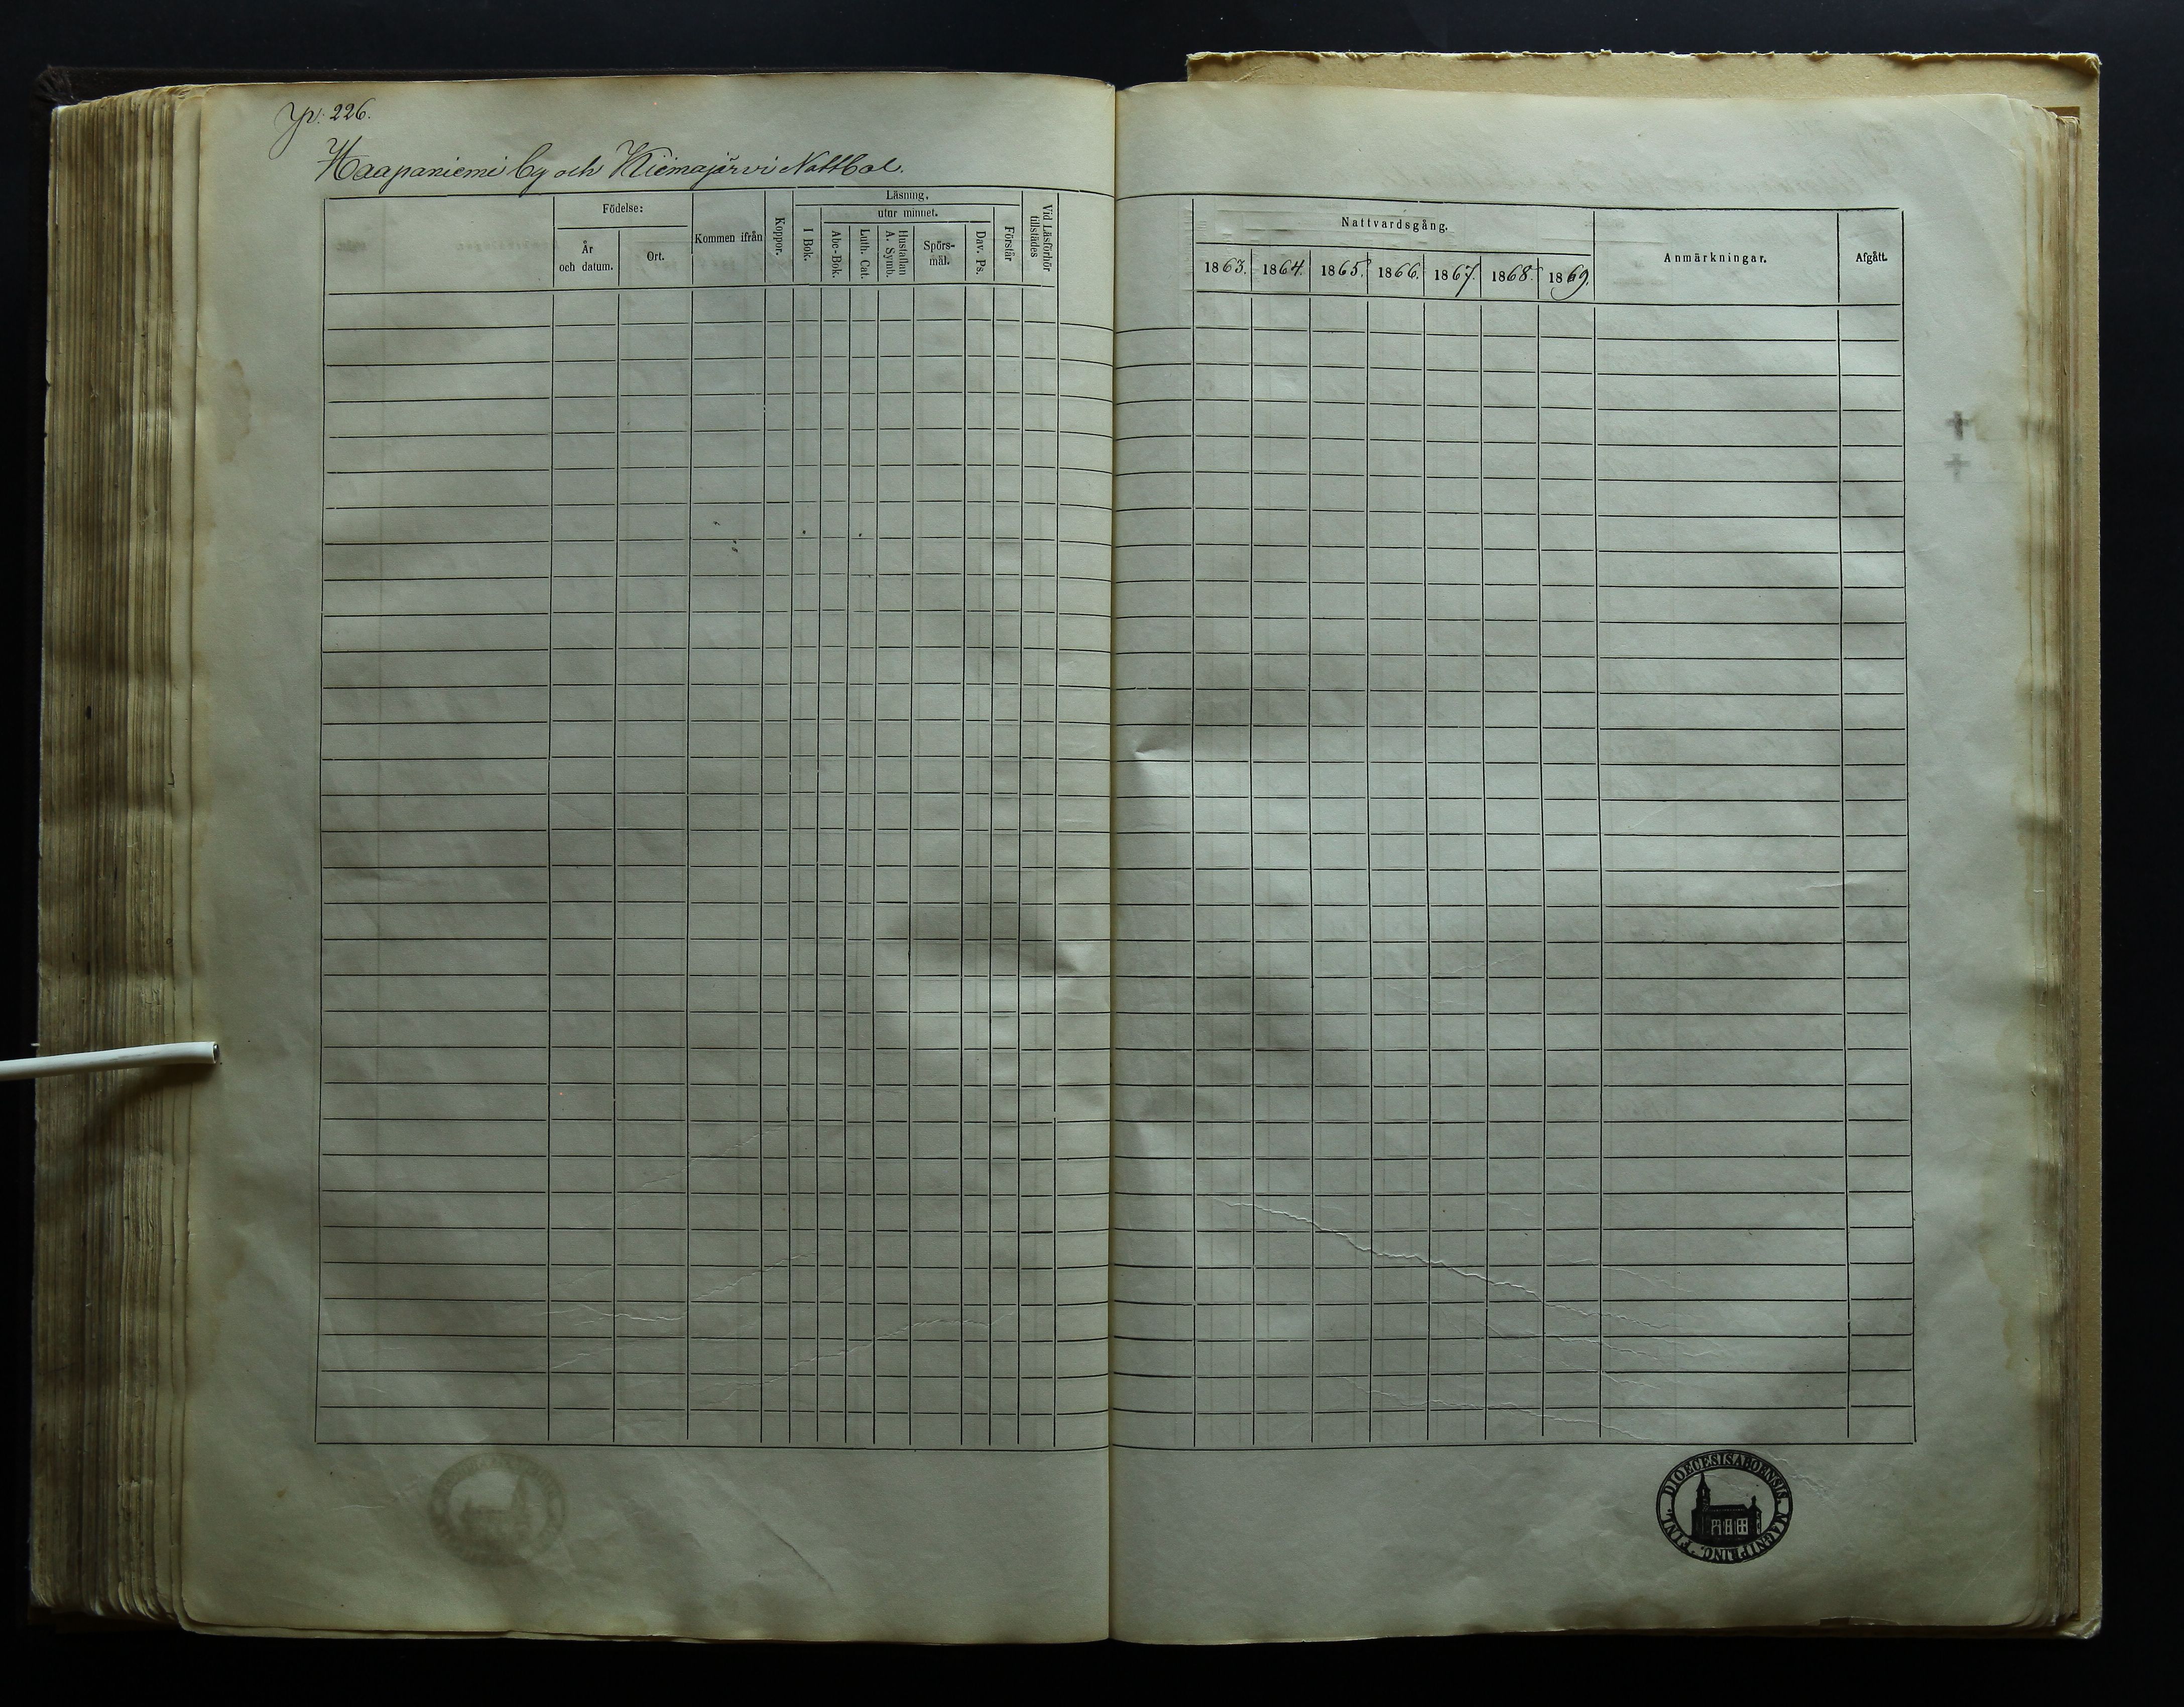 p. 226.
Haapaniemi by och Kiimajärvi Nattbol.
Födelse:
År
och datum.
Ort.
Kommen ifrån
Koppor.
Läsning,
utur minnet.
I Bok.
Abc-Bok.
Luth. Cat.
Hustaflan
A. Symb.
Spörs-
mål.
Dav. Ps.
Förstår
Vid Läsförhör
tillstädes
Nattvardsgång.
1863. 1864. 1865. 1866. 1867. 1868. 1869.
Anmärkningar.
Afgått.
DIOECESIS ABOENSIS. MAGNI PRINC. FINL.